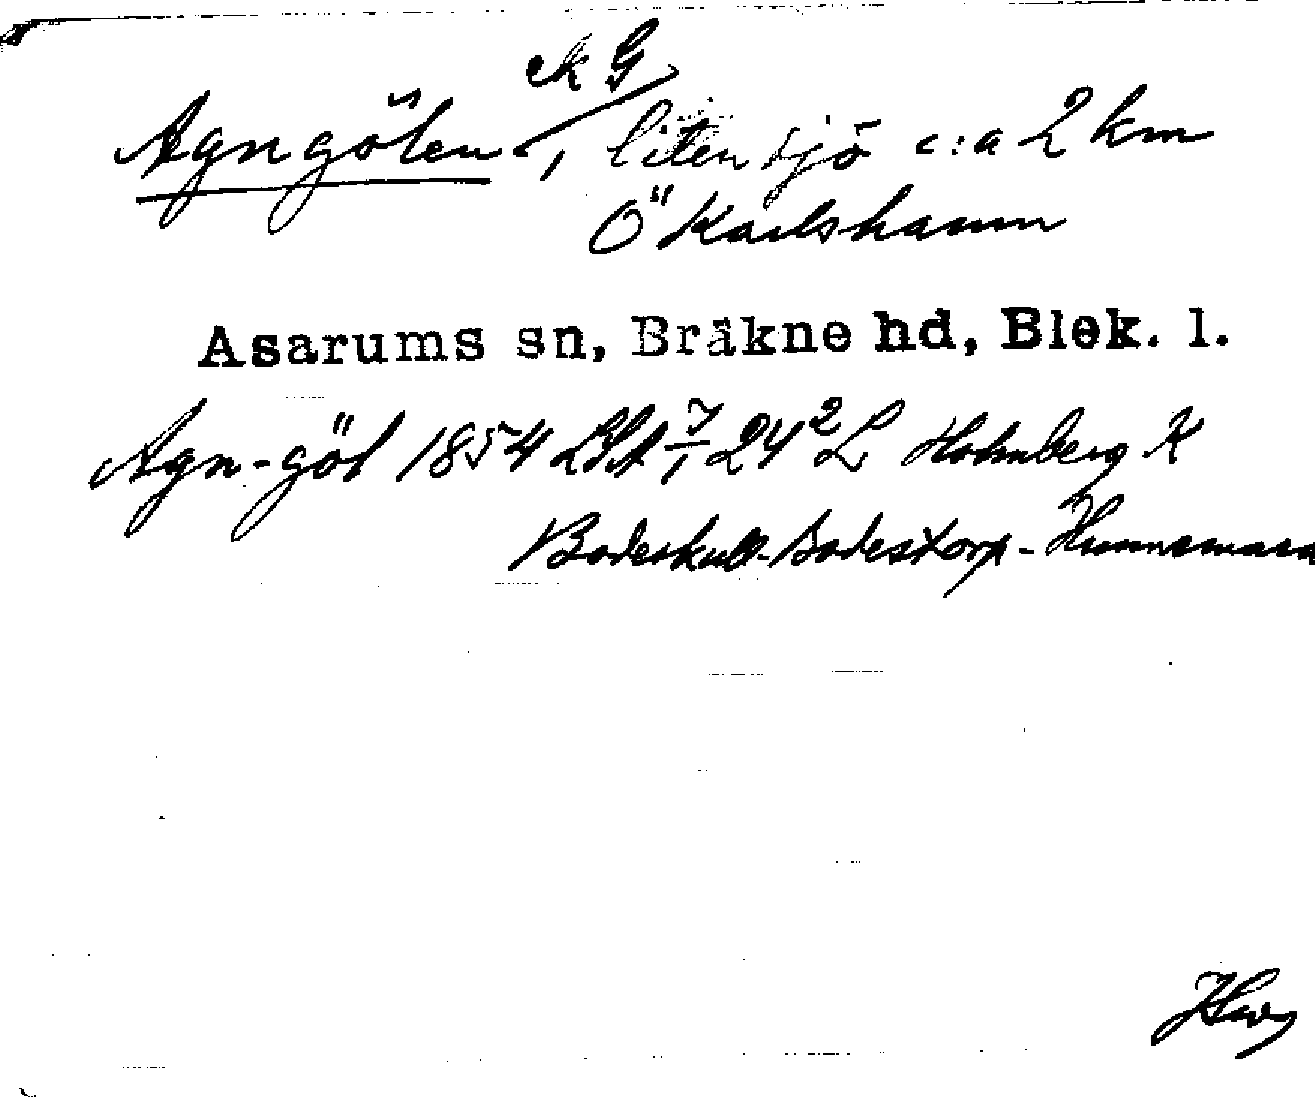 ek G
Agngölen, liten sjö c:a 2 km
Ö Karlshamn
Asarums sn, Bräkne hd, Blek. l.
Agn-göl 1854 LSA 7/1 24² L Holmberg K
Bodeskull-Bodestorp-Hunnamara